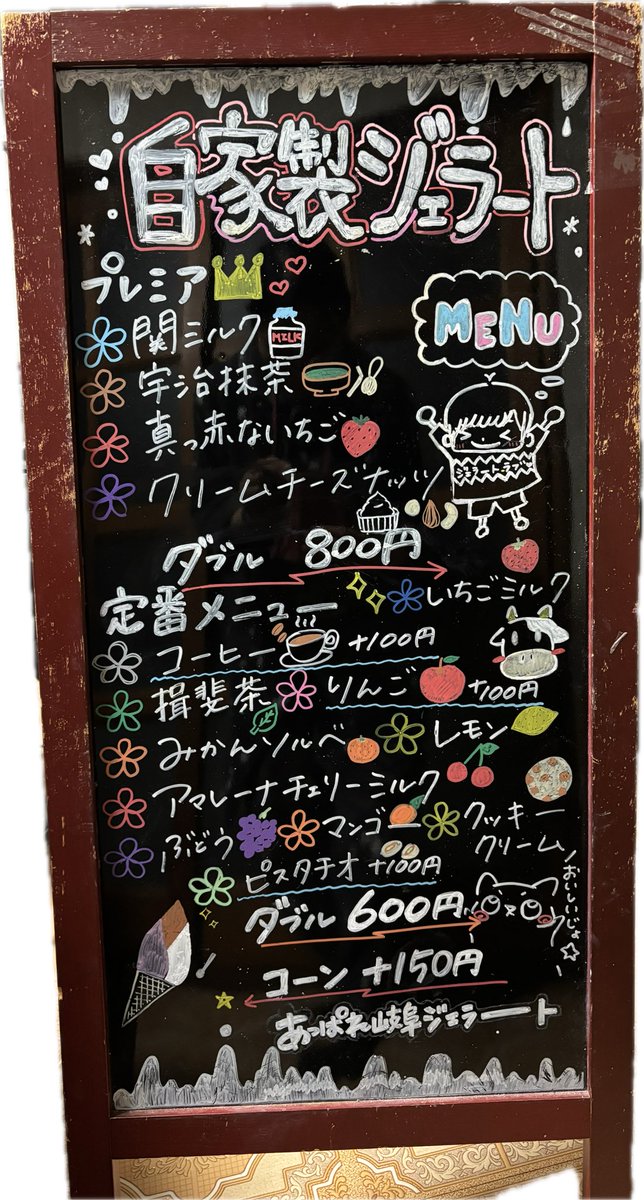 自家製ジェラート
プレミア
MENU
関ミルク
MILK
宇治抹茶
真っ赤ないちご
クリームチーズナッツ
ダブル 800円
定番メニュー
いちごミルク
コーヒー +100円
揖斐茶
りんご +100円
みかんソルベ
レモン
アマレーナチェリーミルク
ぶどう
マンゴー
クッキー
クリーム
ピスタチオ +100円
おいしいじょ
ダブル 600円
コーン +150円
あっぱれ岐阜ジェラート